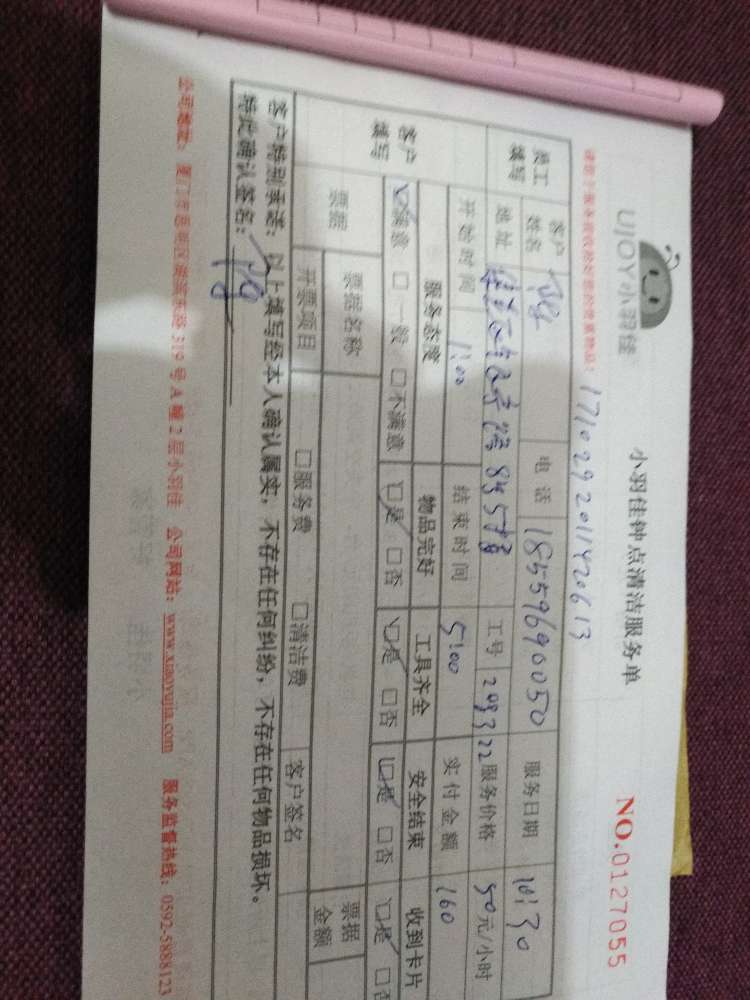 UJOY小羽佳
小羽佳钟点清洁服务单
NO.0127055
1710292011420613
员工填写 客户姓名 电话 18559690050 服务日期 10.30
地址 工号 服务价格 50元/小时
开始时间 1:00 结束时间 5:00 实付金额 160
客户填写 服务态度 物品完好 工具齐全 安全结束 收到卡片
☑满意 □一般 □不满意 ☑是 □否 ☑是 □否 ☑是 □否 ☑是 □否
票据 票据名称 客户签名 票据金额
开票项目 □服务费 □清洁费
客户特别承诺：以上填写经本人确认属实，不存在任何纠纷，不存在任何物品损坏。
特此确认签名：
319号A幢2层小羽佳 公司网站：www.xiaoyujia.com 服务监督热线：0592-5888123